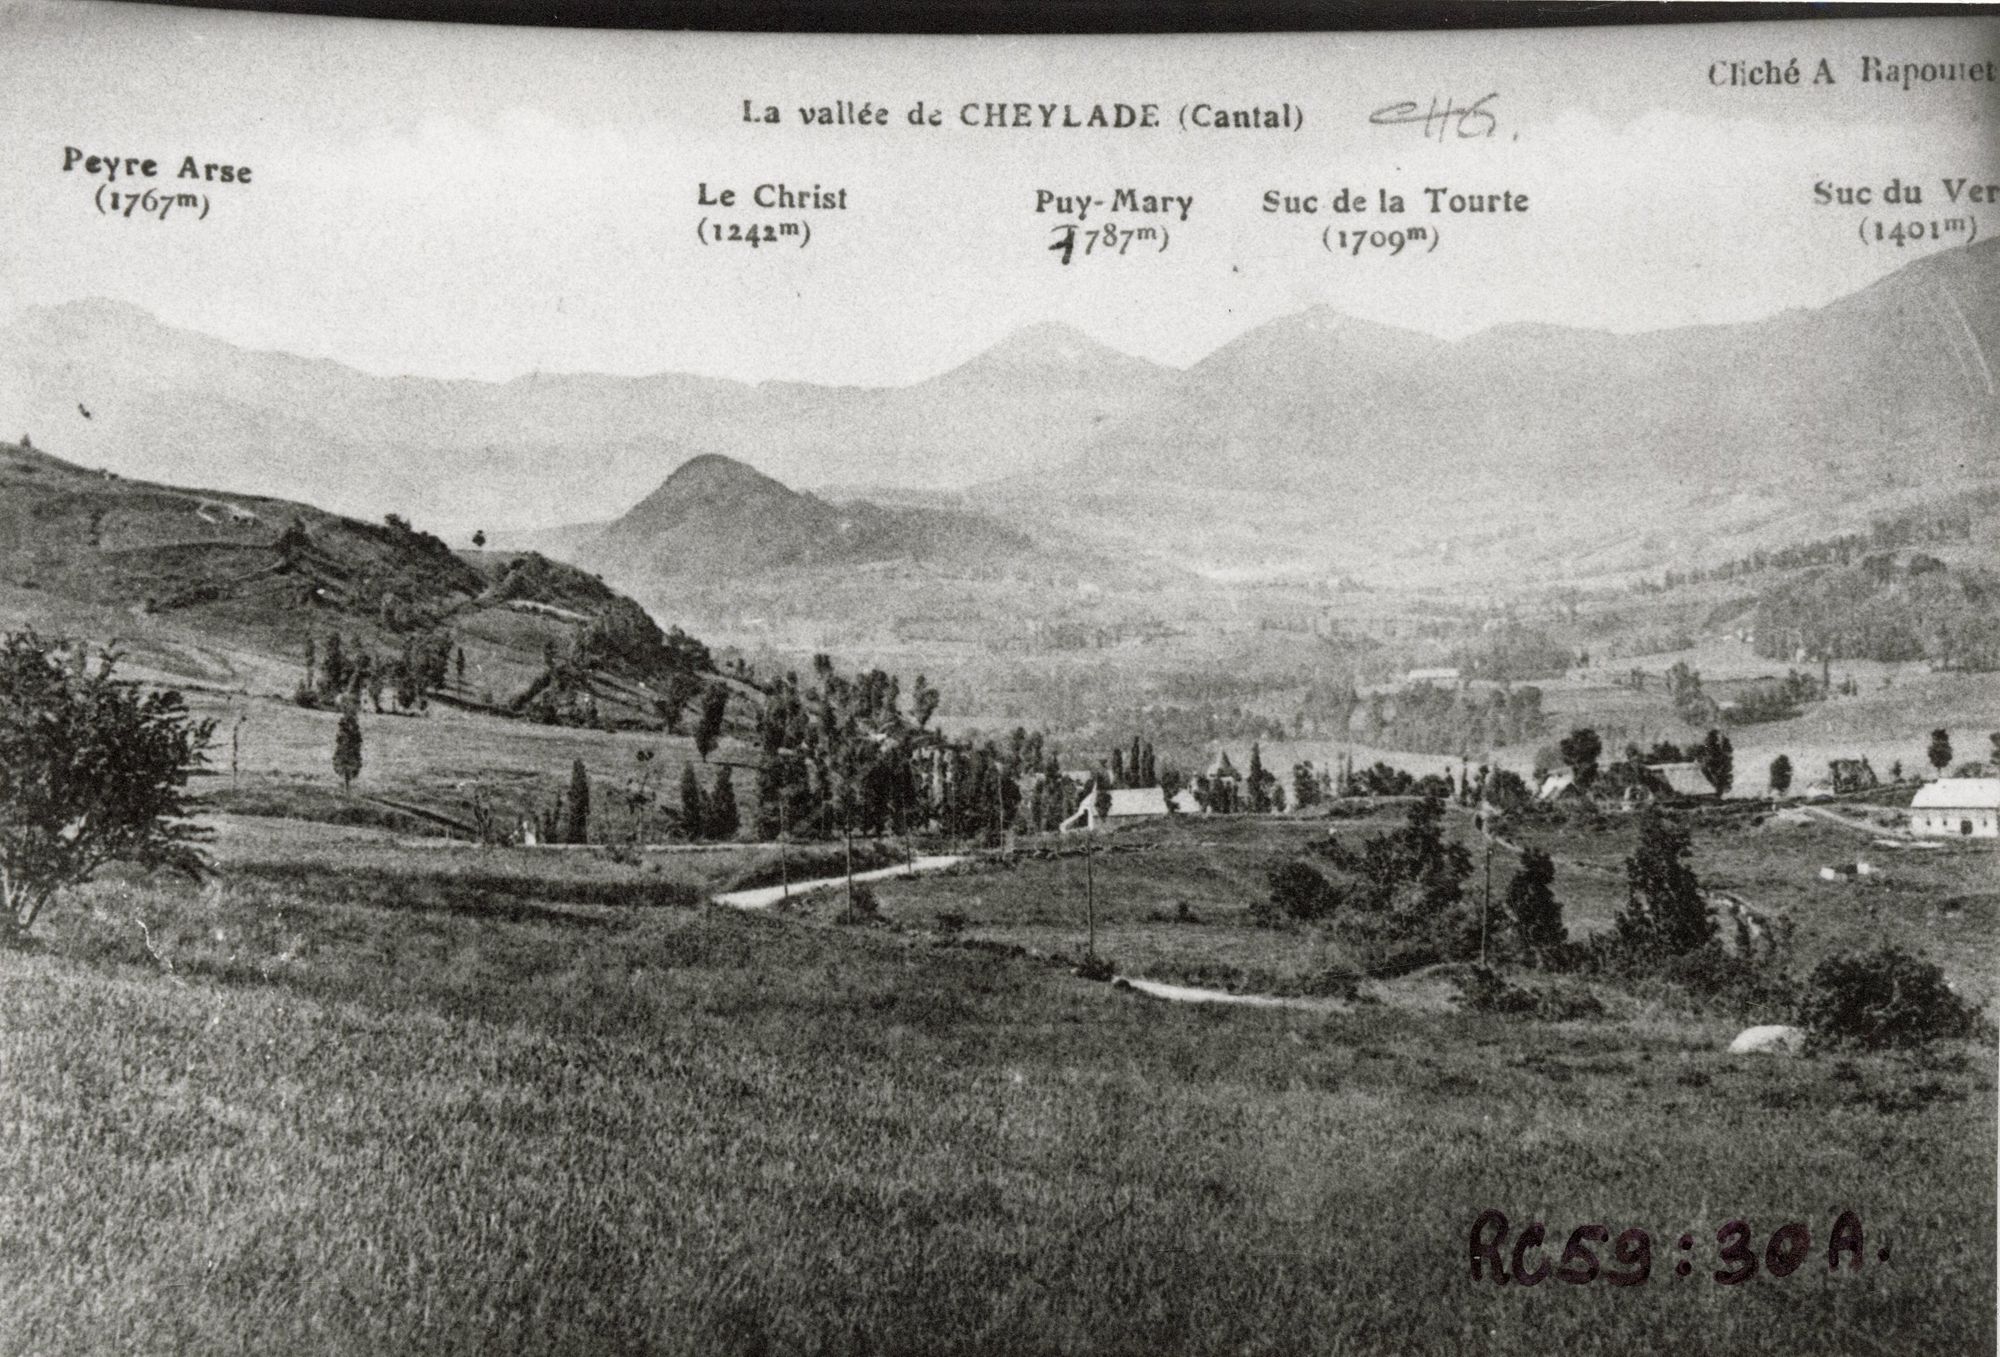 Cliché A Rapoutet
La vallée de CHEYLADE (Cantal)
Peyre Arse
(1767m)
Le Christ
(1242m)
Puy-Mary
1787m)
Suc de la Tourte
(1709m)
Suc du Ver
(1401m)
RC59:30A.